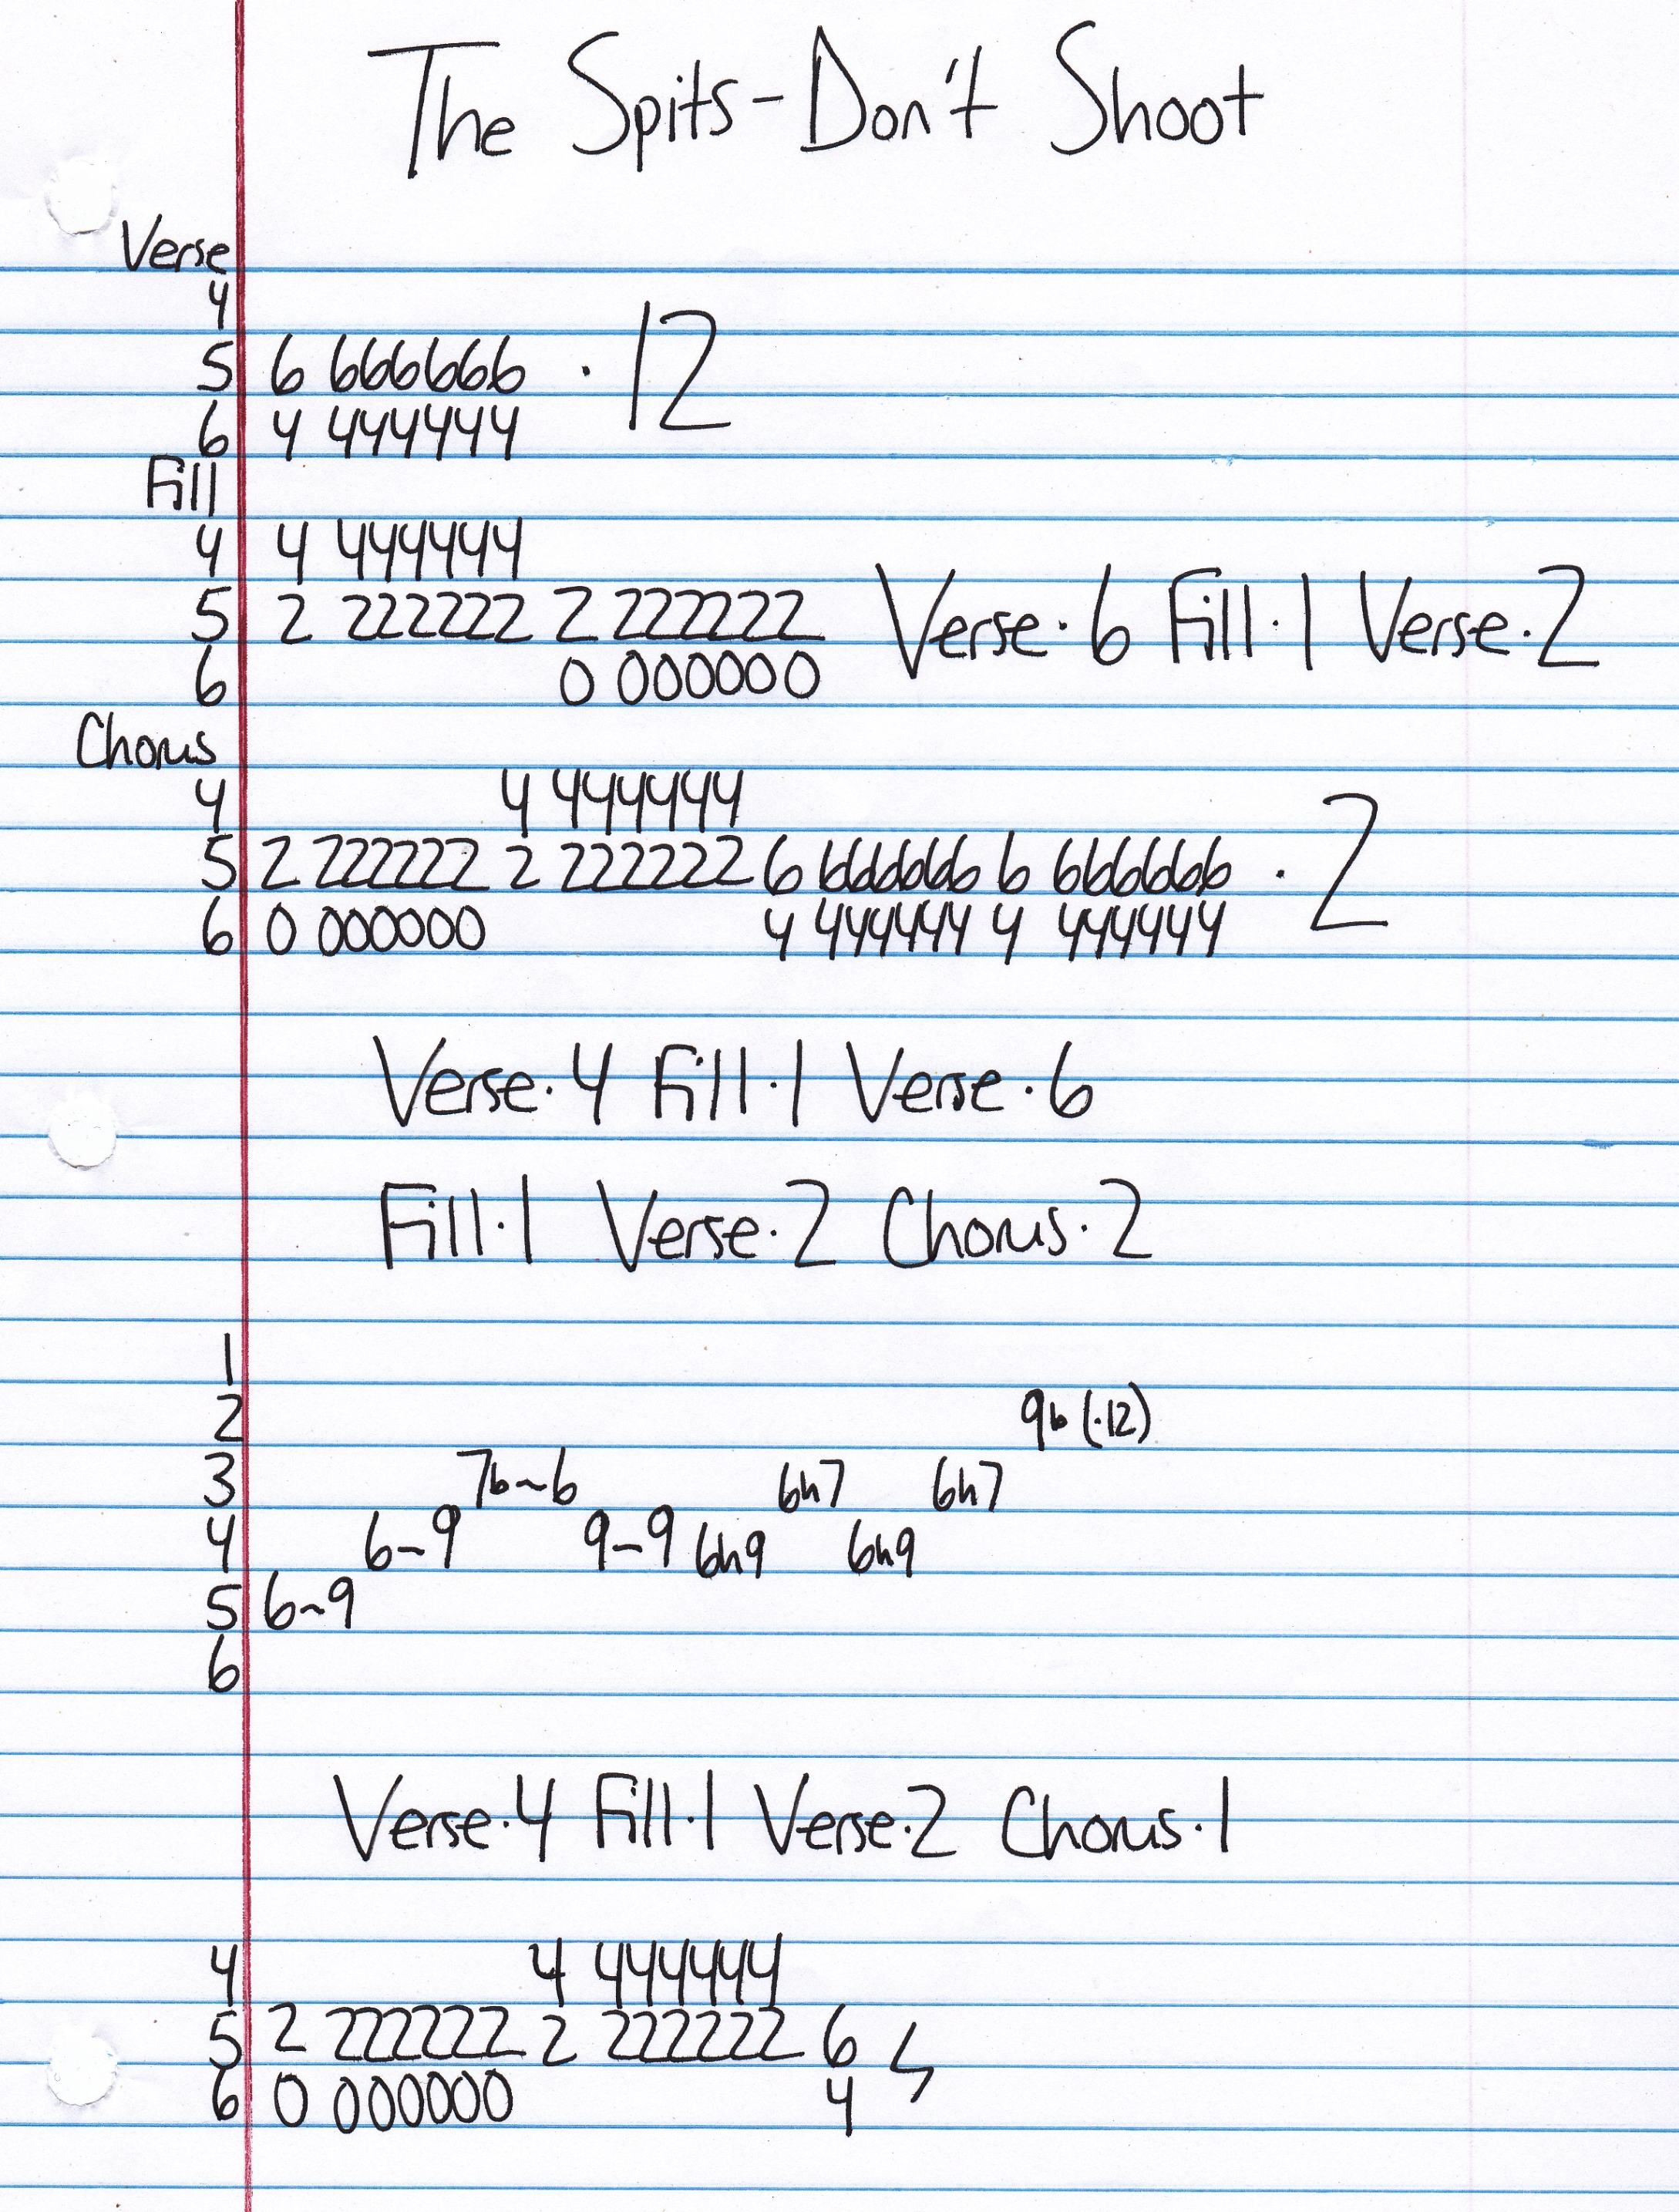 The Spits - Don't Shoot
Verse
4
5 6 666666 · 12
6 4 444444
Fill
4 4 444444
5 2 222222 2 222222 Verse·6 Fill·1 Verse·2
6 0 000000
Chorus
4 4 444444
5 2 222222 2 222222 6 666666 6 666666 · 2
6 0 000000 4 444444 4 444444
Verse·4 Fill·1 Verse·6
Fill·1 Verse·2 Chorus·2
1
2 9b (·12)
3 7b~6 6h7 6h7
4 6~9 9~9 6h9 6h9
5 6~9
6
Verse·4 Fill·1 Verse·2 Chorus·1
4 4 444444
5 2 222222 2 222222 6
6 0 000000 4